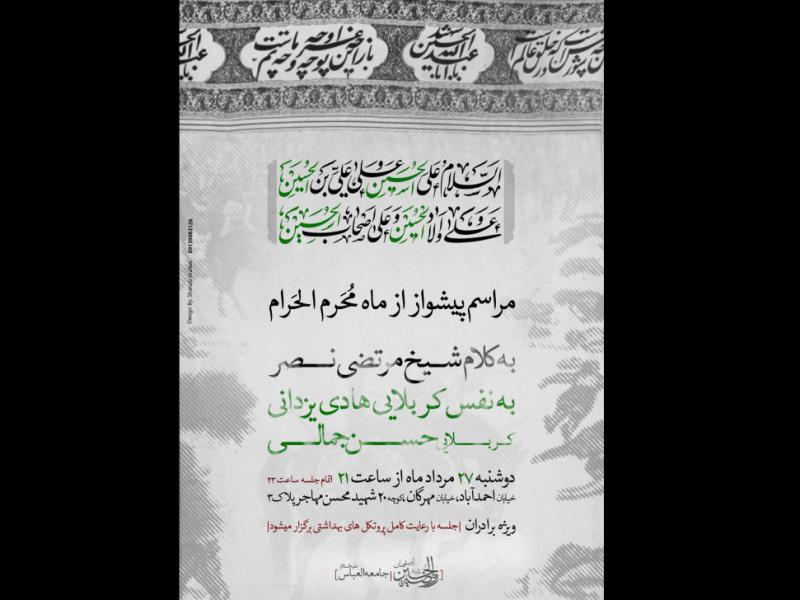 باز این چه نوحه و چه عزا و چه ماتم است
السلام علی الحسین و علی علی بن الحسین
و علی اولاد الحسین و علی اصحاب الحسین
مراسم پیشواز از ماه مُحَرم الحَرام
به کلام شیخ مرتضی نصر
به نفس کربلایی هادی یزدانی
کربلایی حسن جمالی
دوشنبه ۲۷ مرداد ماه از ساعت ۲۱ اتمام جلسه ساعت ۲۳
خیابان احمدآباد، خیابان مهرگان، کوچه ۲۰ شهید محسن مهاجر پلاک ۳
ویژه برادران |جلسه با رعایت کامل پروتکل های بهداشتی برگزار میشود|
جامعه العباس